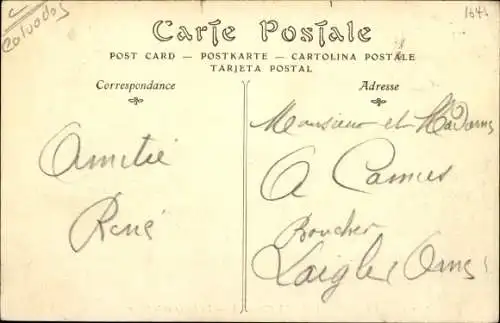 Calvados
164
Carte Postale
POST CARD — POSTKARTE — CARTOLINA POSTALE
TARJETA POSTAL
Correspondance
Adresse
Amitié
René
Monsieur et Madame
A Camus
Boucher
Laigle Orne